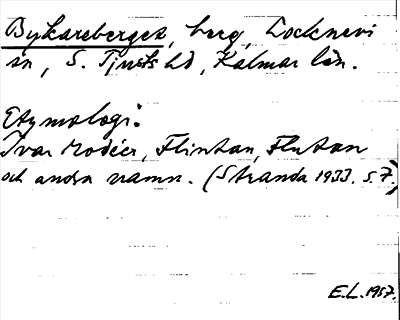 Bykareberget, berg, Locknevi
sn, S. Tjusts hd, Kalmar län.
Etymologi:
Ivar Modéer, Flintan, Flutan
och andra namn. (Stranda 1933. s. 7)
E.L. 1957.